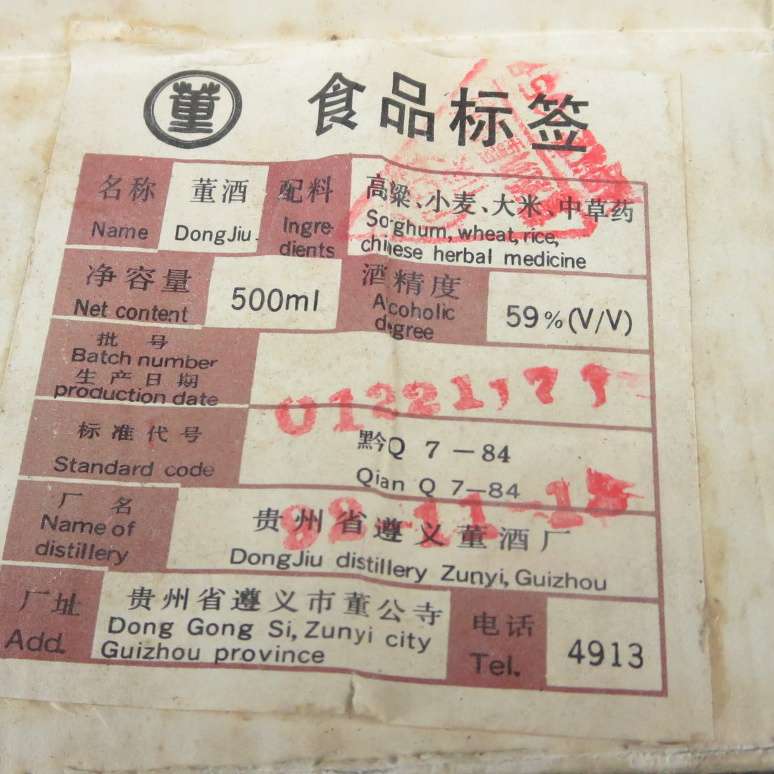 董 食品标签
名称 董酒 配料 高粱、小麦、大米、中草药
Name DongJiu. Ingre- Sorghum, wheat, rice,
dients chinese herbal medicine
净容量 500ml 酒精度 59%(V/V)
Net content Alcoholic
degree
批号
Batch number
生产日期
production date
标准代号 黔Q 7-84
Standard code Qian Q 7-84
厂名 贵州省遵义董酒厂
Name of
distillery DongJiu distillery Zunyi, Guizhou
厂址 贵州省遵义市董公寺 电话 4913
Add. Dong Gong Si, Zunyi city Tel.
Guizhou province